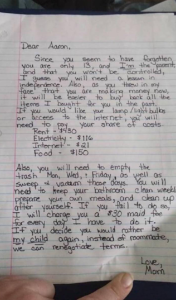 Dear Aaron,
Since you seem to have forgotten
you are only 13, and I'm the parent,
and that you won't be controlled,
I guess you will need a lesson in
independence. Also, as you threw in my
face that you are making money now,
it will be easier to buy back all the
items I bought for you in the past.
If you would like your lamp/lightbulbs
or access to the internet, you will
need to pay your share of costs.
Rent - $430
Electricity - $116
Internet - $21
Food - $150
Also, you will need to empty the
trash Mon, Wed, + Friday, as well as
sweep + vacuum those days. You will
need to keep your bathroom clean weekly,
prepare your own meals, and clean up
after yourself. If you fail to do so,
I will charge you a $30 maid fee
for every day I have to do it.
If you decide you would rather be
my child again, instead of roommate,
we can renegotiate terms.
Love,
Mom